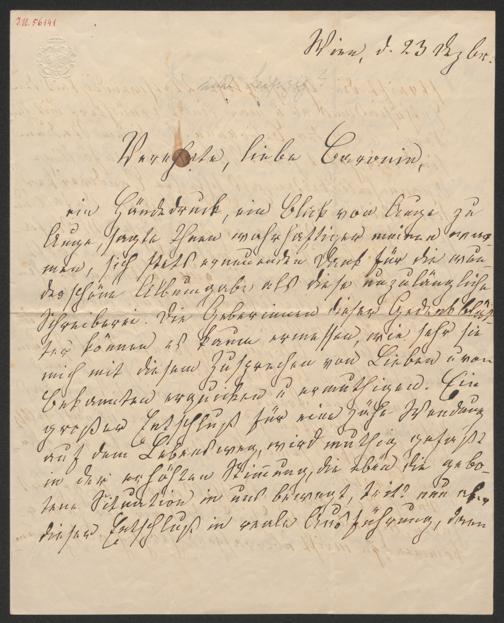 I.N. 56141
Wien, d. 23 Dezbr.
Verehrte, liebe Baronin,
ein Händedruck, ein Blick von Auge zu
Auge, sagte Ihnen wahrhaftiger meinen war-
men, sich stets erneuenden Dank für die wun-
derschöne Albumgabe als diese unzulängliche
Schreiberei. Die Geberinnen dieser Gedenkblät-
ter können es kaum ermessen, wie sehr sie
mich mit diesem Zusprechen von Lieben u von
Bekannten erquicken u ermuthigen. Ein
großer Entschluß für eine jähe Wendung
auf dem Lebensweg, wird muthig gefaßt
in der erhöhten Stimmung, die eben die gebo-
tene Situation in uns bewegt, tritt nun aber
dieser Entschluß in reale Ausführung, dann